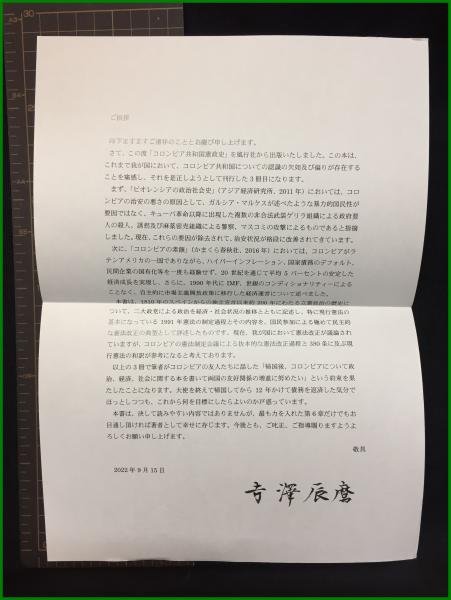 ご挨拶
時下ますますご清祥のこととお慶び申し上げます。
さて、この度「コロンビア共和国憲政史」を風行社から出版いたしました。この本は、
これまで我が国において、コロンビア共和国についての認識の欠如及び偏りが存在する
ことを痛感し、それを是正しようとして刊行した3冊目になります。
まず、「ビオレンシアの政治社会史」(アジア経済研究所、2011年)においては、コロ
ンビアの治安の悪さの原因として、ガルシア・マルケスが述べたような暴力的国民性が
要因ではなく、キューバ革命以降に出現した複数の非合法武装ゲリラ組織による政府要
人の殺人、誘拐及び麻薬密売組織による警察、マスコミの攻撃によるものであると指摘
しました。現在、これらの要因が除去されて、治安状況が格段に改善されてきています。
次に、「コロンビアの素顔」(かまくら春秋社、2016年)においては、コロンビアがラ
テンアメリカの一国でありながら、ハイパーインフレーション、国家債務のデフォルト、
民間企業の国有化等を一度も経験せず、20世紀を通じて平均5パーセントの安定した
経済成長を実現し、さらに、1990年代にIMF、世銀のコンディショナリティーによる
ことなく、自主的に市場主義開放政策に移行した経済運営について述べました。
本書は、1810年のスペインからの独立宣言以来約200年にわたる立憲政治の歴史に
ついて、二大政党による政治を経済・社会状況の推移とともに記述し、特に現行憲法の
基本になっている1991年憲法の制定過程とその内容を、国民参加による極めて民主的
な憲法改正の典型として詳述したものです。現在、我が国において憲法改正が議論され
ていますが、コロンビアの憲法制定会議による抜本的な憲法改正過程と380条に及ぶ現
行憲法の和訳が参考になると考えております。
以上の3冊で筆者がコロンビアの友人たちに話した「帰国後、コロンビアについて政
治、経済、社会に関する本を書いて両国の友好関係の増進に努めたい」という約束を果
たしたことになります。大使を終えて帰国してから12年かけて債務を返済した気分で
ほっとしつつも、これから何を目標にしたらよいのか戸惑っています。
本書は、決して読みやすい内容ではありませんが、最も力を入れた第6章だけでもお
目通し頂ければ著者として幸せに存じます。今後とも、ご叱正、ご指導賜りますようよ
ろしくお願い申し上げます。
敬具
2022年9月15日
寺澤辰麿